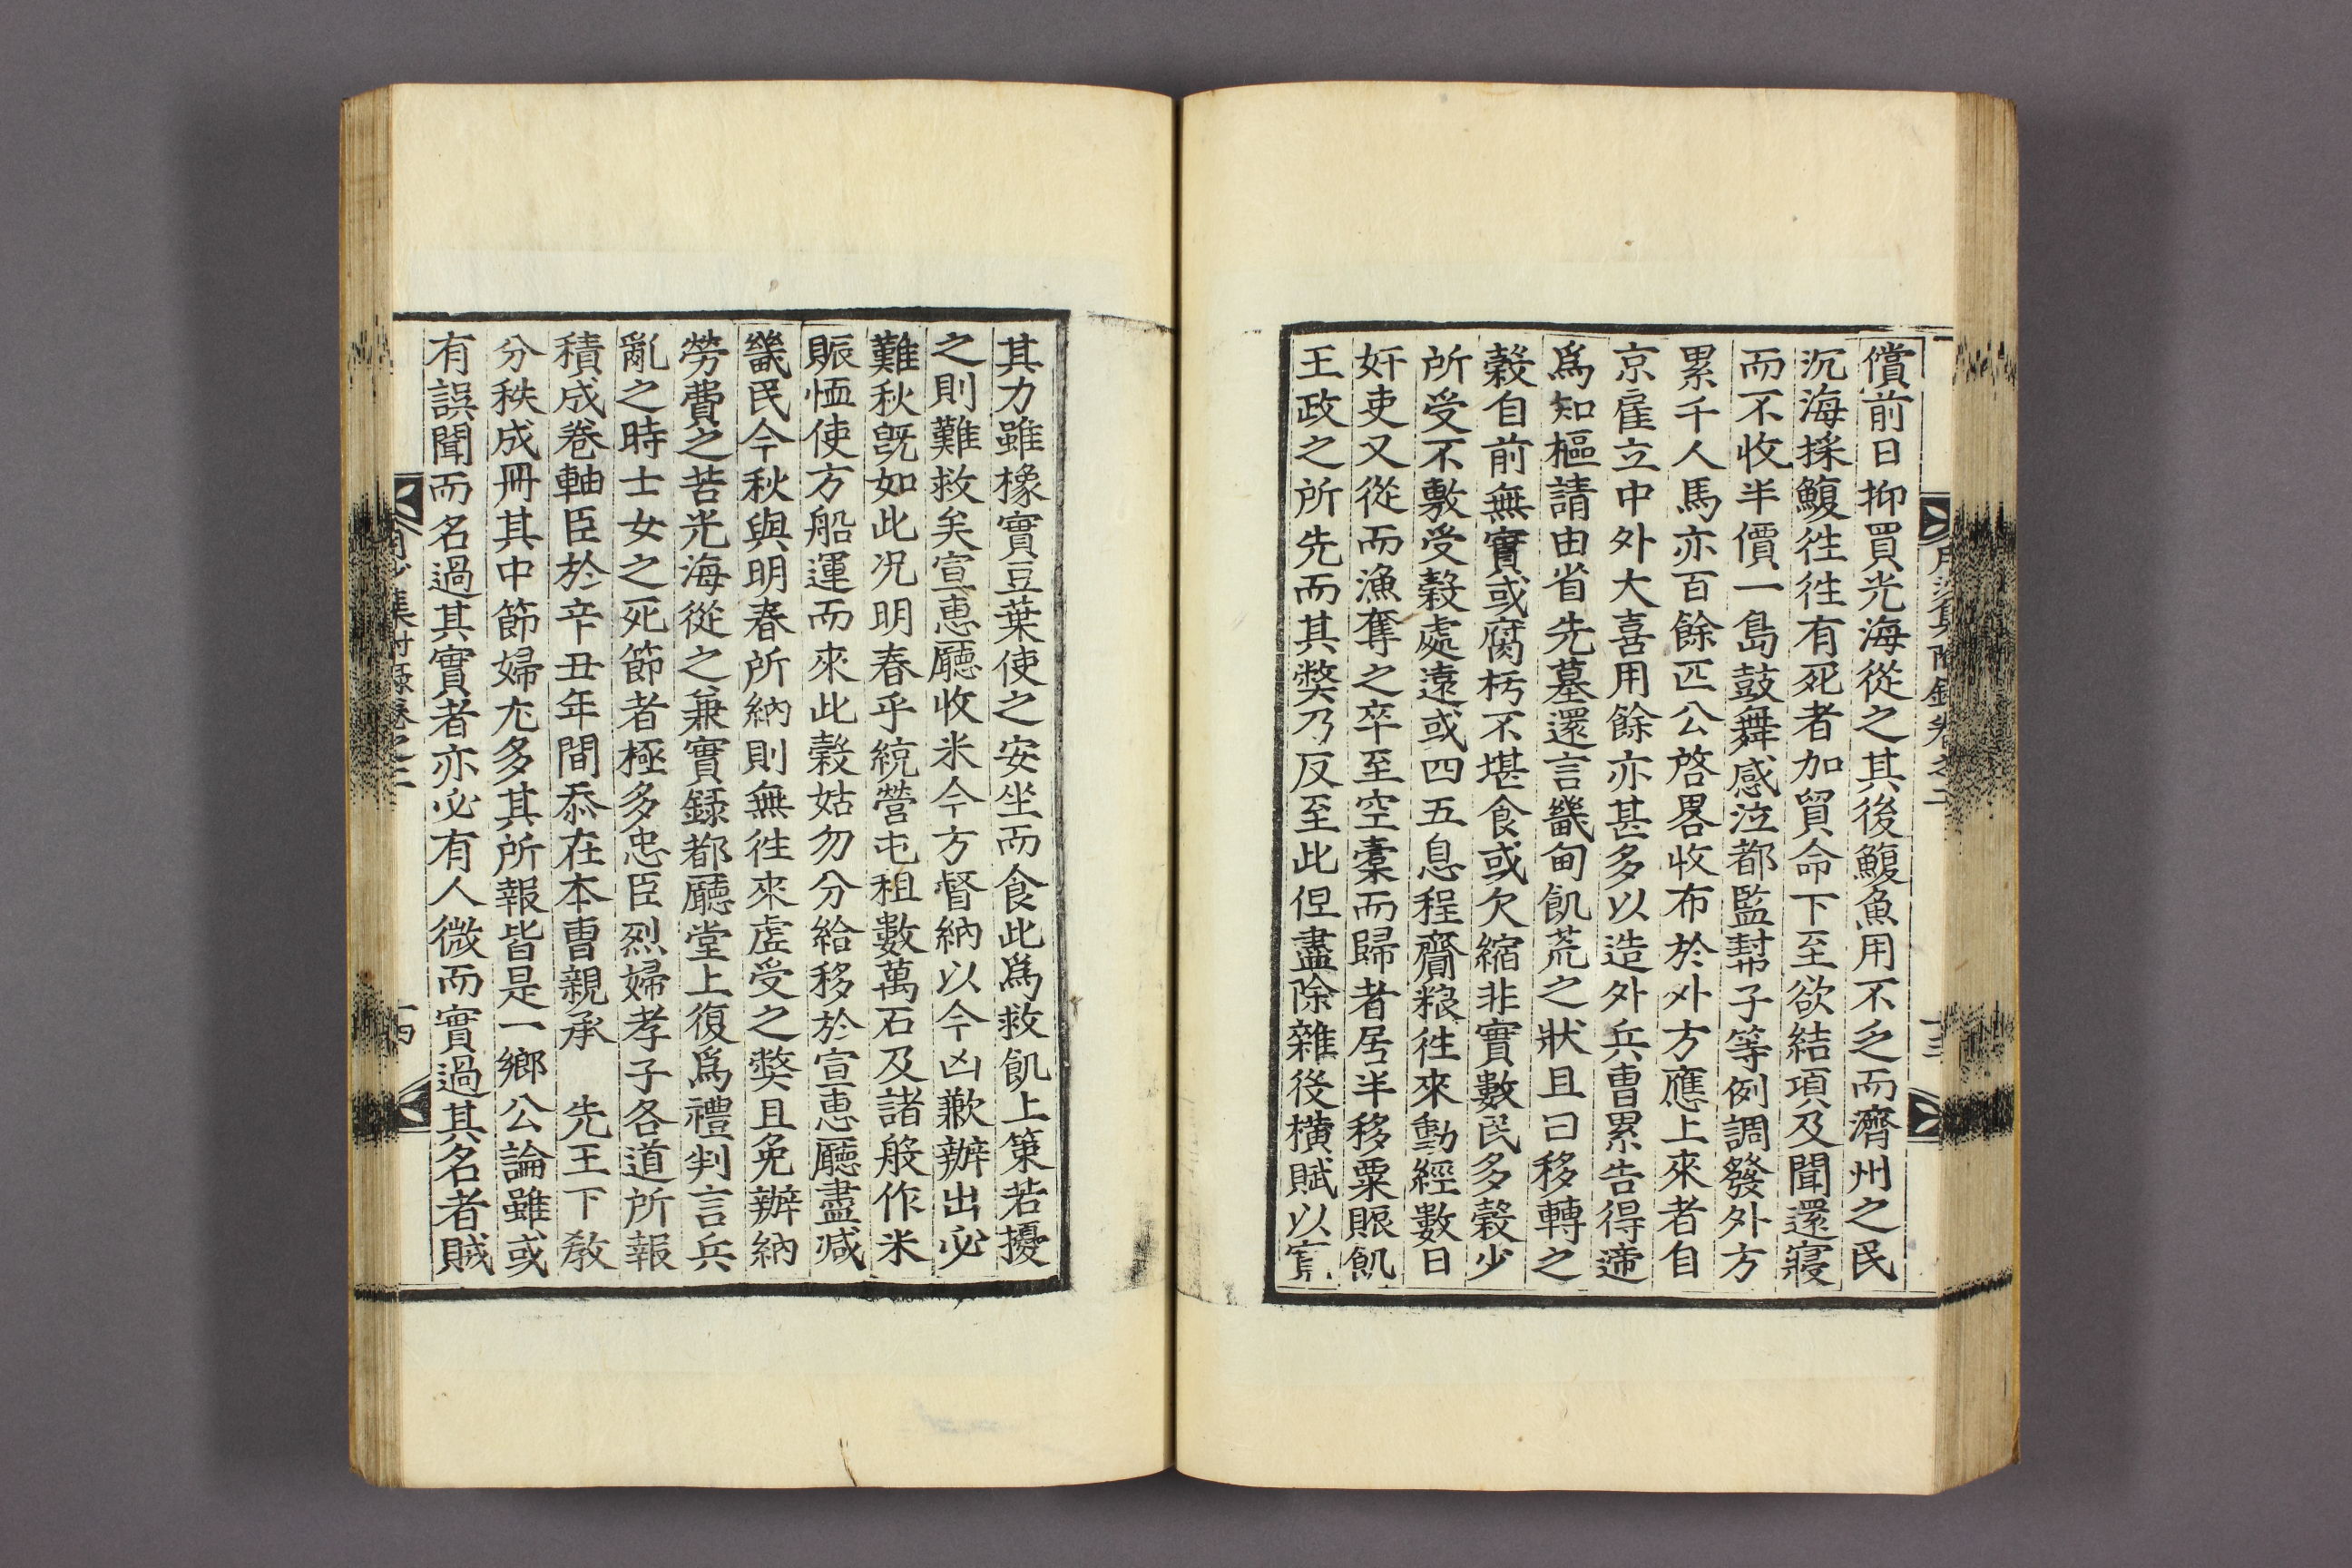 償前日抑買光海從之其後鰒魚用不乏而濟州之民
沉海採鰒徃徃有死者加貿命下至欲結項及聞還寢
而不收半價一島鼓舞感泣都監幇子等例調發外方
累千人馬亦百餘匹公啓畧收布於外方應上來者自
京雇立中外大喜用餘亦甚多以造外兵曹累告得遆
爲知樞請由省先墓還言畿甸飢荒之狀且曰移轉之
穀自前無實或腐朽不堪食或欠縮非實數民多穀少
所受不敷受穀處遠或四五息程齎粮徃來動經數日
奸吏又從而漁奪之卒至空橐而歸者居半移粟賑飢
王政之所先而其獘乃反至此但盡除雜後橫賦以寬
其力雖橡實豆葉使之安坐而食此爲救飢上策若擾
之則難救矣宣惠廳收米今方督納以今凶歉辦出必
難秋旣如此况明春乎統營屯租數萬石及諸般作米
賑恤使方船運而來此穀姑勿分給移於宣惠廳盡减
畿民今秋與明春所納則無徃來虛受之獘且免辦納
勞費之苦光海從之兼實錄都廳堂上復爲禮判言兵
亂之時士女之死節者極多忠臣烈婦孝子各道所報
積成卷軸臣於辛丑年間忝在本曹親承　先王下敎
分秩成冊其中節婦尤多其所報皆是一鄕公論雖或
有誤聞而名過其實者亦必有人微而實過其名者賊
集附錄卷之二
十四